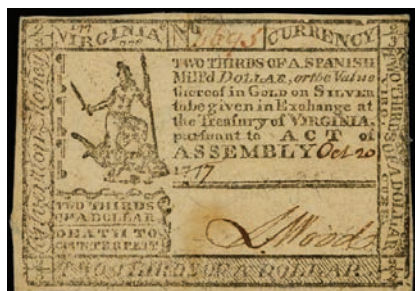 VIRGINIA No 1695 CURRENCY
TWO THIRDS OF A SPANISH
Mill'd DOLLAR, or the Value
thereof in GOLD or SILVER
to be given in Exchange at
the Treasury of VIRGINIA,
pursuant to ACT of
ASSEMBLY Oct 20
1777
TWO THIRDS
OF A DOLLAR
DEATH TO
COUNTERFEIT
TWO THIRDS OF A DOLLAR